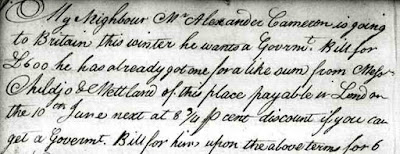 My Neighbour Mr. Alexander Cameron is going
to Britain this winter he wants a Governt. Bill for
£600 he has already got one for a like sum from Messrs
& Mettland of this place payable in London
the 10th June next at 8 3/4 p Cent discount if you can
get a Governt. Bill for him upon the above terms for 6